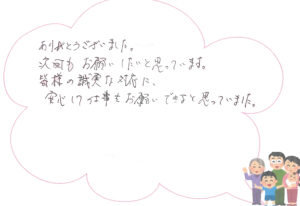 ありがとうございました。
次回も お願いしたいと思っています。
皆様の誠実な対応に、
安心して仕事をお願いできると思っていました。